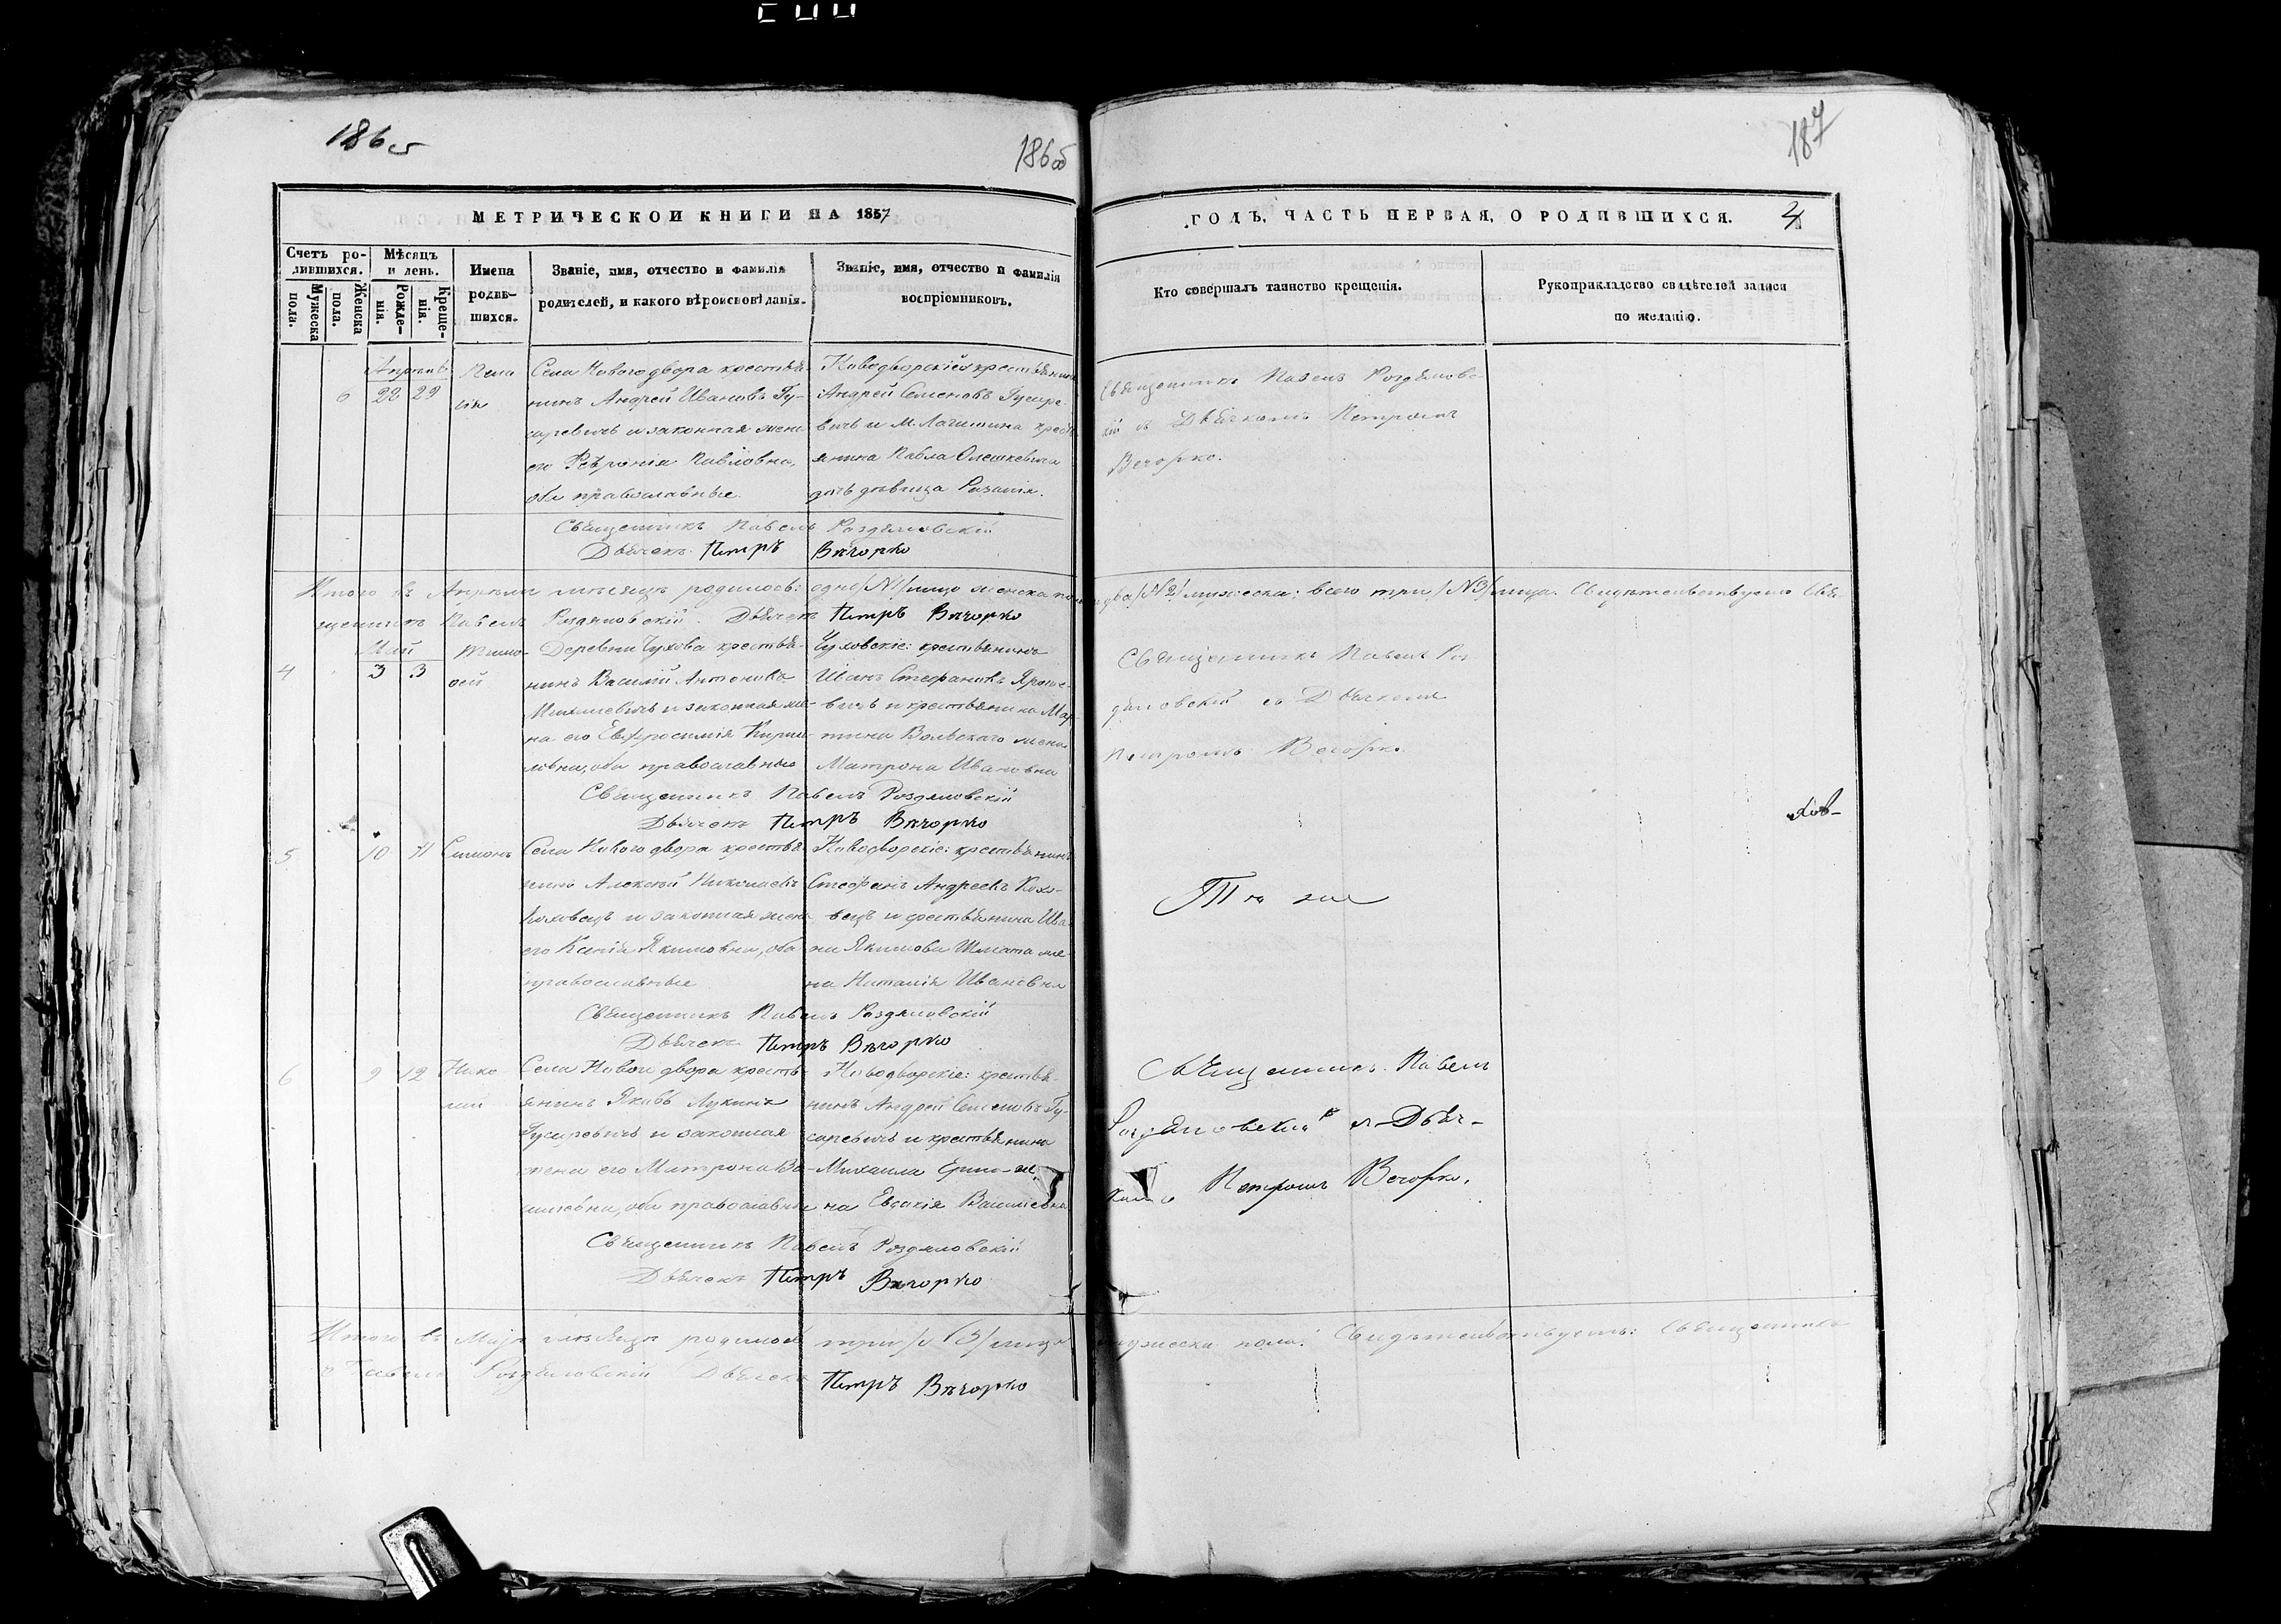 186 об
186 об
187
МЕТРИЧЕСКОЙ КНИГИ НА 1857
ГОДЪ, ЧАСТЬ ПЕРВАЯ, О РОДИВШИХСЯ. 4
Счетъ родившихся.
Мужеска пола.
Женска пола.
Мѣсяцъ и день.
Рожденія.
Крещенія.
Имена родившихся.
Званіе, имя, отчество и фамилія
родителей, и какого вѣроисповѣданія.
Званіе, имя, отчество и фамилія
воспріемниковъ.
Кто совершалъ таинство крещенія.
Рукоприкладство свидѣтелей записи
по желанію.
6
22 29
Села Новогодвора крестья-
нинъ Андрей Ивановъ Гу-
саревичъ и законная жена
его Павловна,
оба православные.
крестьянинъ
Андрей Семеновъ Гусаре-
вичъ и М. Логишина крест-
янина Павла Олешкевича
дочь девица
Священникъ Павелъ
скій съ Дьячкомъ Петромъ
Вечорко.
Священникъ Павелъ Роздяловскій
Дьячекъ Петръ Вѣчорко
Итого въ Апрѣлѣ мѣсяцѣ родилось: одно /№1/ лице женска пола
два /№2/ мужеска; всего три /№3/ лица. Свидѣтельствуетъ Свя-
щенникъ Павелъ Роздяловскій. Дьячекъ Петръ Вѣчорко
Май
4
3 3
Тимо-
фей
Деревни Чухова крестья-
нинъ Василій Антоновъ
и законная же-
на его Евфросинія Кирил-
ловна, оба православные
Чуховскіе: крестьянинъ
Иванъ Стефановъ
вичъ и крестьянина Мар-
тина Вольскаго жена
Матрона Ивановна
Священникъ Павелъ Роз-
дяловскій съ Дьячкомъ
Петромъ Вечорко.
Священникъ Павелъ Роздяловскій
Дьячекъ Петръ Вѣчорко
5
10 11
Симонъ
Села Новогодвора крестья-
нинъ Алексѣй Николаевъ
Коховецъ и законная жена
его Ксенія Якимовна, оба
православные
Новодворскіе: крестьянинъ
Стефанъ Андреевъ Кохо-
вецъ и крестьянина Ива-
на Якимова Шмата же-
на Наталія Ивановна
Тѣ же
Священникъ Павелъ Роздяловскій
Дьячекъ Петръ Вѣчорко
6
9 12
Нико-
лай
Села Новогодвора кресть-
янинъ Яковъ Лукинъ
Гусаревичъ и законная
жена его Матрона Ва-
сильевна, оба православные
Новодворскіе: крестья-
нинъ Андрей Семеновъ Гу-
саревичъ и крестьянина
Михаила же-
на Евдокія Васильевна
Священникъ Павелъ
Роздяловскій съ Дьяч-
комъ Петромъ Вечорко.
Священникъ Павелъ Роздяловскій
Дьячекъ Петръ Вѣчорко
Итого въ Маѣ мѣсяцѣ родилось три /№3/ лица
мужеска пола. Свидѣтельствуетъ: Священникъ
Павелъ Роздяловскій Дьячекъ Петръ Вѣчорко